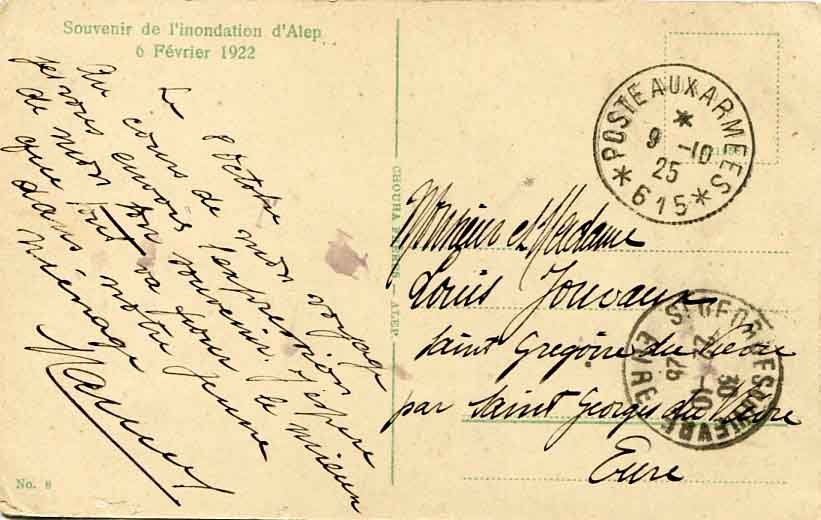 Souvenir de l'inondation d'Alep
6 Février 1922
Le 8 Octobre
Au cours de mon voyage
je vous envois l'expression
de mon bon souvenir. J'espère
que tout va pour le mieux
dans votre jeune
ménage
CHOUHA FRÈRES — ALEP
No. 8
*POSTE AUX ARMEES*
*
9 -10
25
615
Monsieur et Madame
Louis Jouvaux
Saint Grégoire du Vièvre
par Saint Georges du Vièvre
Eure
ST GEORGES DU VIEVRE
EURE
30 -10